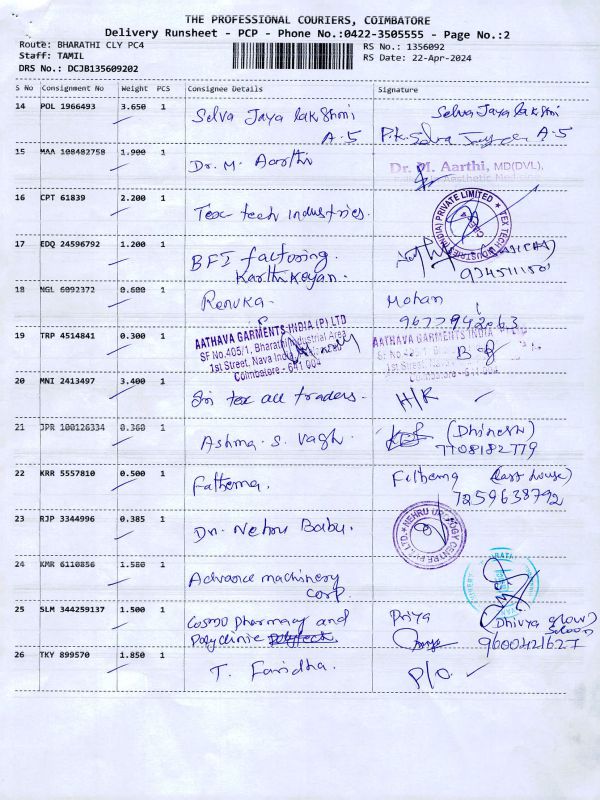 THE PROFESSIONAL COURIERS, COIMBATORE
Delivery Runsheet - PCP - Phone No.:0422-3505555 - Page No.:2
Route: BHARATHI CLY PC4
RS No.: 1356092
Staff: TAMIL
RS Date: 22-Apr-2024
DRS No.: DCJB135609202
S No Consignment No Weight PCS Consignee Details Signature
14 POL 1966493 3.650 1 Selva Jaya lakshmi Selva Jaya lakshmi
A.5 A-5
15 MAA 108482758 1.900 1 Dr. M. Aarthi Dr. M. Aarthi, MD(DVL),
Aesthetic Medicine
16 CPT 61839 2.200 1 Tex tech industries.
TEX TECH INDUSTRIES (INDIA) PRIVATE LIMITED
17 EDQ 24596792 1.200 1 BFI factoring.
Karthikeyan.
18 NGL 6092372 0.600 1 Renuka. Mohan
9677942063
19 TRP 4514841 0.300 1 AATHAVA GARMENTS INDIA (P) LTD AATHAVA GARMENTS INDIA
SF No.405/1, Bharathi Industrial Area
1st Street, Nava India
Coimbatore - 641 004 Coimbatore - 641 004
20 MNI 2413497 3.400 1 Sri tex all traders. H/R
21 JPR 100126334 0.360 1 Ashma. S. Vagh. (Dhinesh)
7708182779
22 KRR 5557810 0.500 1 Fathema. Fathema (last house)
7259638792
23 RJP 3344996 0.385 1 Dr. Nehru Babu.
NEHRU UROLOGY CENTRE PVT. LTD.
24 KMR 6110856 1.580 1 Advance machinery
corp.
25 SLM 344259137 1.500 1 Cosmo pharmacy and Priya
Polyclinic Dhivya glow
saloon
9600421627
26 TKY 899570 1.850 1 T. Faridha. P/O.